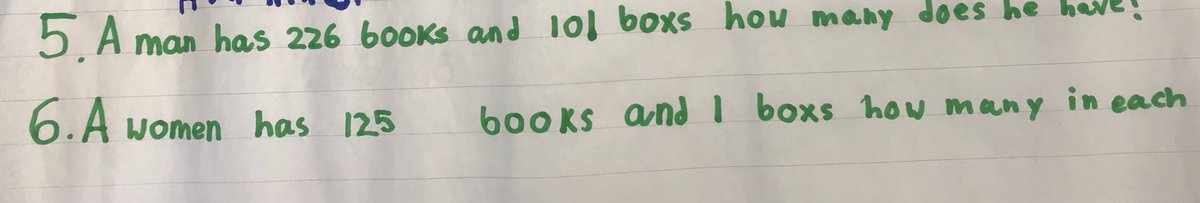 5. A man has 226 books and 101 boxs how many does he have?
6. A women has 125 books and 1 boxs how many in each